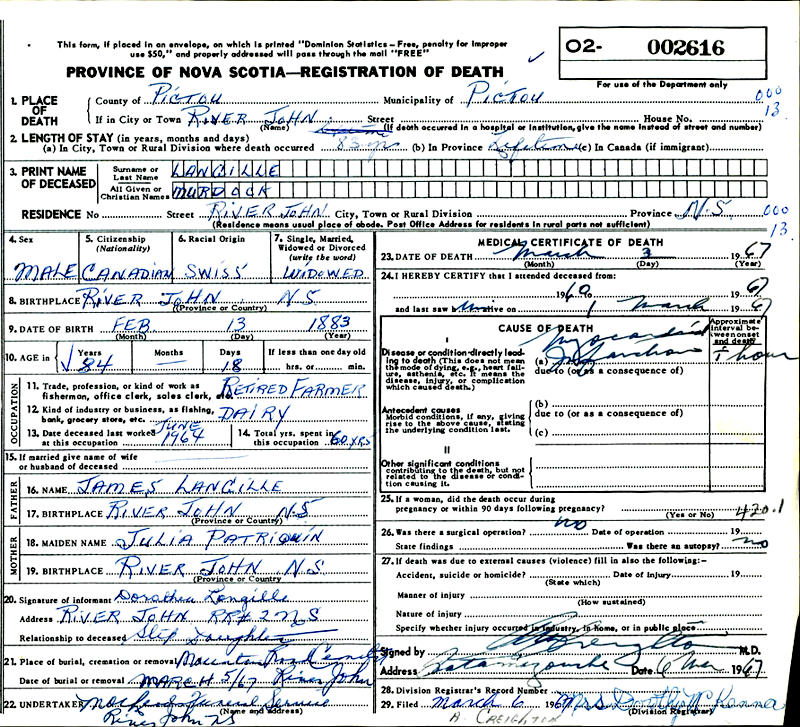 This form, if placed in an envelope, on which is printed "Dominion Statistics - Free, penalty for improper
use $50," and properly addressed will pass through the mail "FREE"
O2- 002616
PROVINCE OF NOVA SCOTIA—REGISTRATION OF DEATH
For use of the Department only
1. PLACE OF DEATH County of PICTOU Municipality of PICTOU 000
If in City or Town RIVER JOHN Street House No. 13
(Name) (If death occurred in a hospital or institution, give the name instead of street and number)
2. LENGTH OF STAY (in years, months and days)
(a) In City, Town or Rural Division where death occurred 83 yrs (b) In Province Lifetime (c) In Canada (if immigrant)
3. PRINT NAME OF DECEASED
Surname or Last Name LANGILLE
All Given or Christian Names MURDOCK
RESIDENCE No Street RIVER JOHN City, Town or Rural Division Province N.S 000
(Residence means usual place of abode. Post Office Address for residents in rural parts not sufficient) 13
4. Sex MALE
5. Citizenship (Nationality) CANADIAN
6. Racial Origin SWISS
7. Single, Married, Widowed or Divorced (write the word) WIDOWED
8. BIRTHPLACE RIVER JOHN N S
(Province or Country)
9. DATE OF BIRTH FEB 13 1883
(Month) (Day) (Year)
10. AGE in Years 84 Months — Days 18 If less than one day old
hrs. or min.
OCCUPATION
11. Trade, profession, or kind of work as fisherman, office clerk, sales clerk, etc. RETIRED FARMER
12. Kind of industry or business, as fishing, bank, grocery store, etc. DAIRY
13. Date deceased last worked at this occupation JUNE 1964
14. Total yrs. spent in this occupation 60 YRS
15. If married give name of wife
or husband of deceased
FATHER
16. NAME JAMES LANGILLE
17. BIRTHPLACE RIVER JOHN N.S
(Province or Country)
MOTHER
18. MAIDEN NAME JULIA PATRIQUIN
19. BIRTHPLACE RIVER JOHN N S
(Province or Country)
20. Signature of informant Dorothea Langille
Address RIVER JOHN RR# 2 N S
Relationship to deceased Step Daughter
21. Place of burial, cremation or removal Mountain Road Cemetery
Date of burial or removal MARCH 5/67 River John
22. UNDERTAKER Funeral Service
(Name and address)
River John NS
MEDICAL CERTIFICATE OF DEATH
23. DATE OF DEATH March 3 1967
(Month) (Day) (Year)
24. I HEREBY CERTIFY that I attended deceased from:
1960 67
and last saw h alive on 1 March 1967
CAUSE OF DEATH
Approximate interval between onset and death
I
Disease or condition directly leading to death (This does not mean the mode of dying, e.g., heart failure, asthenia, etc. It means the disease, injury, or complication which caused death.)
(a) Myocardial Infarction 1 hour
due to (or as a consequence of)
Antecedent causes
Morbid conditions, if any, giving rise to the above cause, stating the underlying condition last.
(b)
due to (or as a consequence of)
(c)
II
Other significant conditions
contributing to the death, but not related to the disease or condition causing it.
25. If a woman, did the death occur during
pregnancy or within 90 days following pregnancy? 420.1
(Yes or No)
26. Was there a surgical operation? no Date of operation 19
State findings Was there an autopsy? no
27. If death was due to external causes (violence) fill in also the following:-
Accident, suicide or homicide? Date of injury 19
(State which)
Manner of injury
(How sustained)
Nature of injury
Specify whether injury occurred in industry, in home, or in public place
Signed by A Creighton M.D.
Address Tatamagouche Date 6 Mar 1967
28. Division Registrar's Record Number
29. Filed March 6 1967 Mrs Dorothy McKenna
(Division Registrar)
A. CREIGHTON